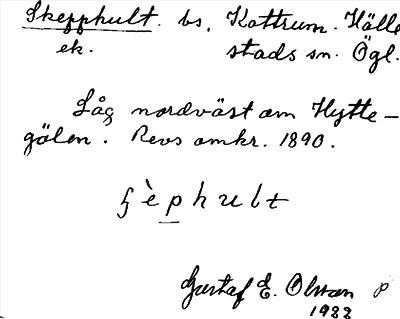 Skepphult. bs. Kattrum. Hälle
ek. stads sn. Ögl.
Låg nordväst om Hytte-
gölen. Revs omkr. 1890.
ʃèphult
Gustaf E. Olsson P
1933